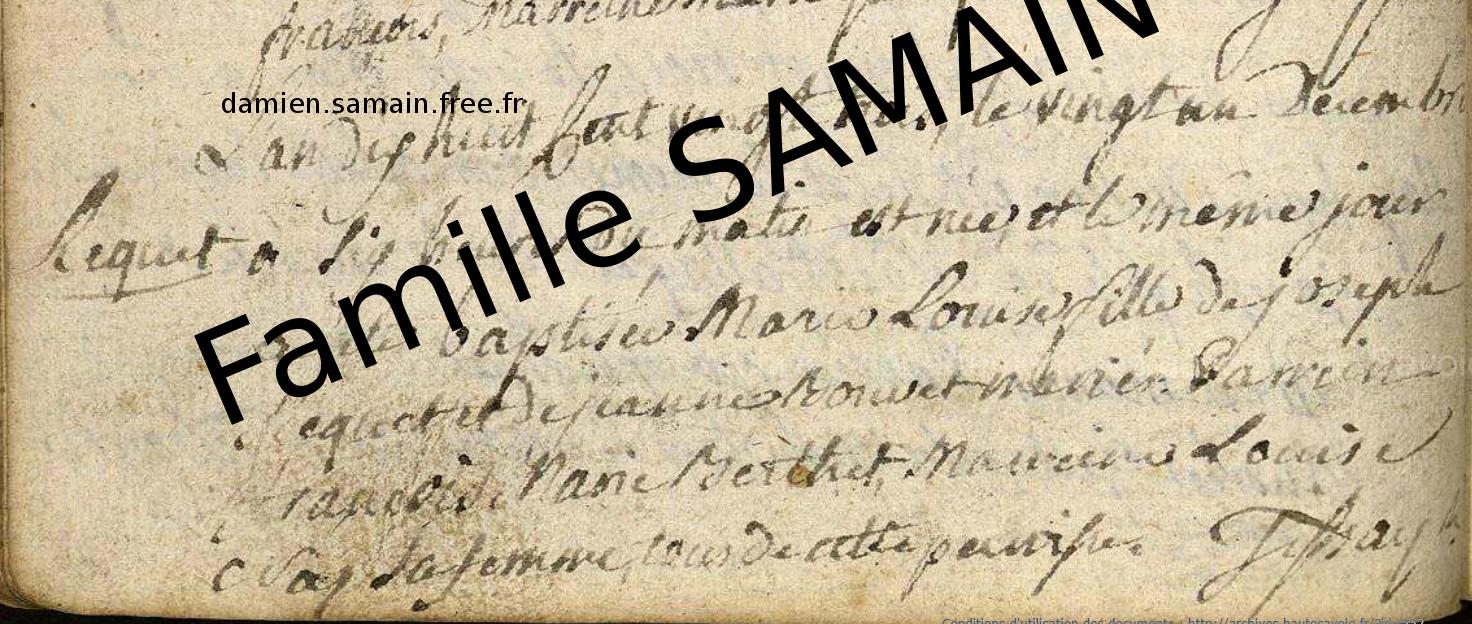 damien.samain.free.fr
Famille SAMAIN
L'an dix huit Cent vingt trois, le vingt un Decembre
Requet
a Six heures Du matin est née, et le même jour
a été baptisée Marie Louise fille de joseph
Requet et De jeanne Bouvet mariés. Parrein
françois Marie Berthet, Marreine Louise
sa femme, tous De cette parroisse.
Conditions d'utilisation des documents : http://archives.hautesavoie.fr/